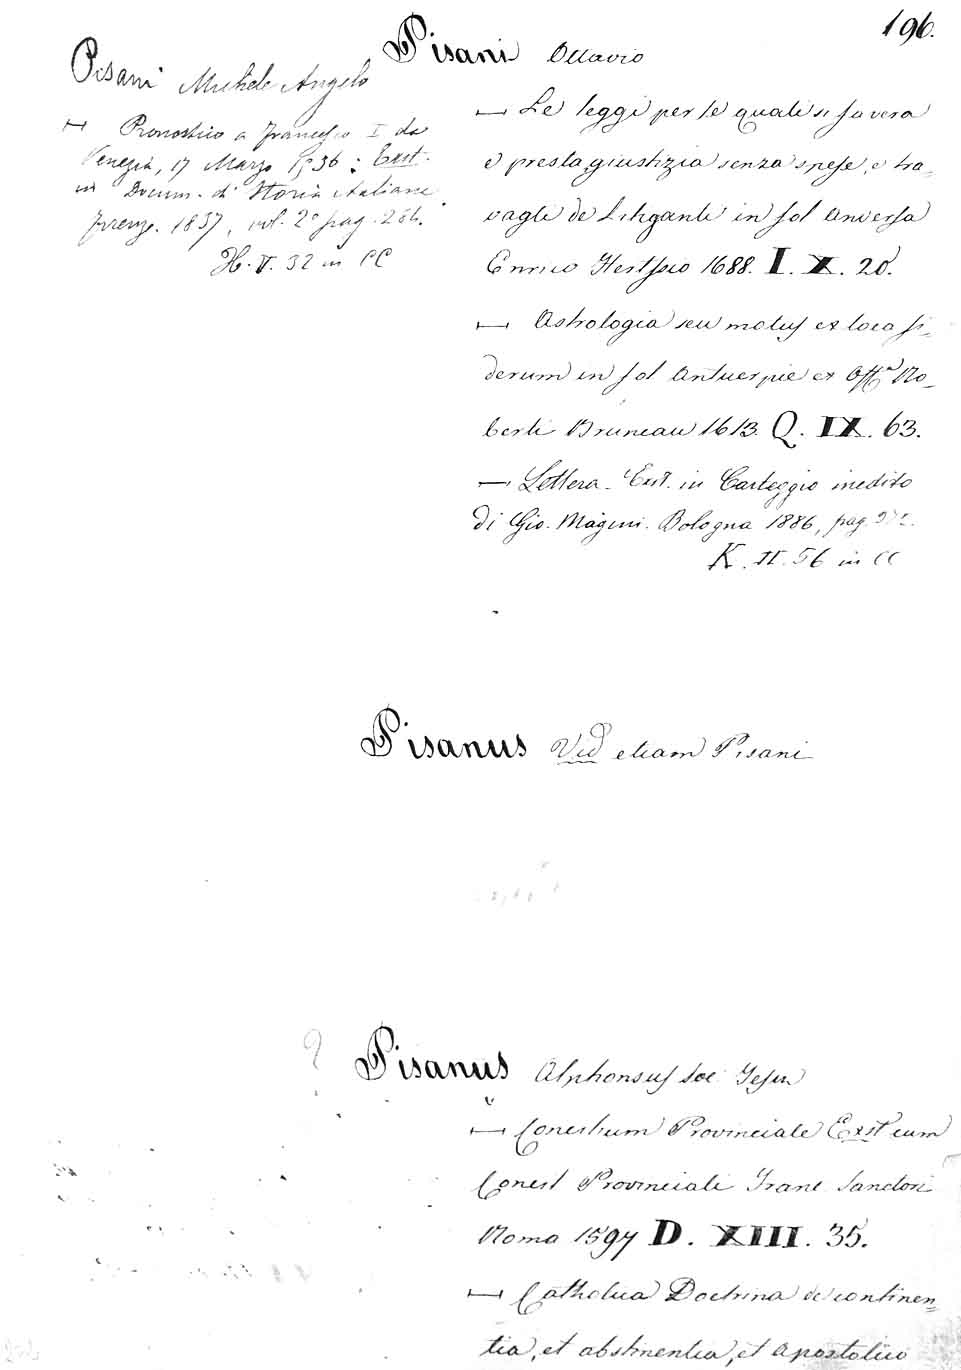 196.
Pisani Michele Angelo
— Pronostico a Francesco I da
Venezia, 17 Marzo 1536: Exst.
in Docum. di Storia italiana
Firenze. 1837, vol. 2º pag. 266.
H. V. 32 in CC
Pisani Ottavio
— Le leggi per le quali si fa vera
e presta giustizia senza spese, e tra-
vagli de Litiganti in fol Anversa
Enrico 1688. I. X. 20.
— Astrologia seu motus et loca si-
derum in fol Antuerpie ex Offª Ro-
berti Bruneau 1613. Q. IX. 63.
— Lettera. Exst. in Carteggio inedito
di Gio. Magini. Bologna 1886, pag.
K. II. 56 in CC
Pisanus Vid etiam Pisani
Pisanus Alphonsus Soc Jesu
— Concilium Provinciale Exst cum
Concil Provinciali Franc Sanctori
Roma 1597 D. XIII. 35.
— Catholica Doctrina de continen=
tia, et abstinentia, et Apostolico